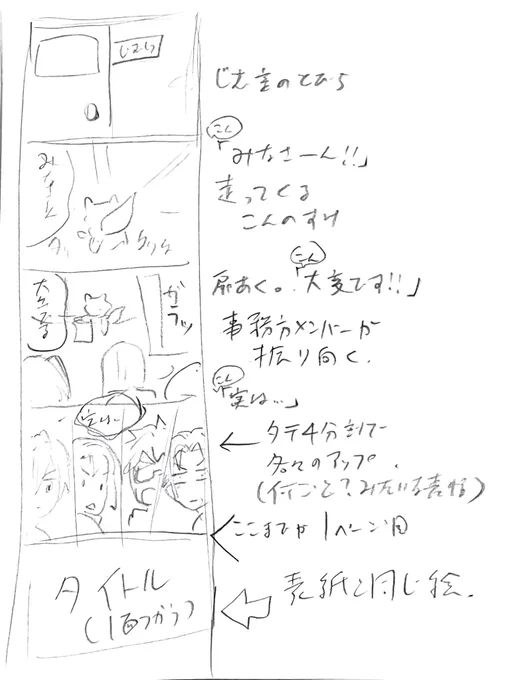 じむしつ
じむ室のとびら
こん
「みなさーん!!」
みなさーん
走ってくる
こんのすけ
タッ
タッタッ
扉あく。
こん
「大変です!!」
大変
ガラッ
事務方メンバーが
振り向く.
こん
「実は…」
実は…
タテ4分割で
各々のアップ.
(何ごと?みたいな表情)
ここまでが1ページ目
タイトル
(1面つかう)
表紙と同じ絵.